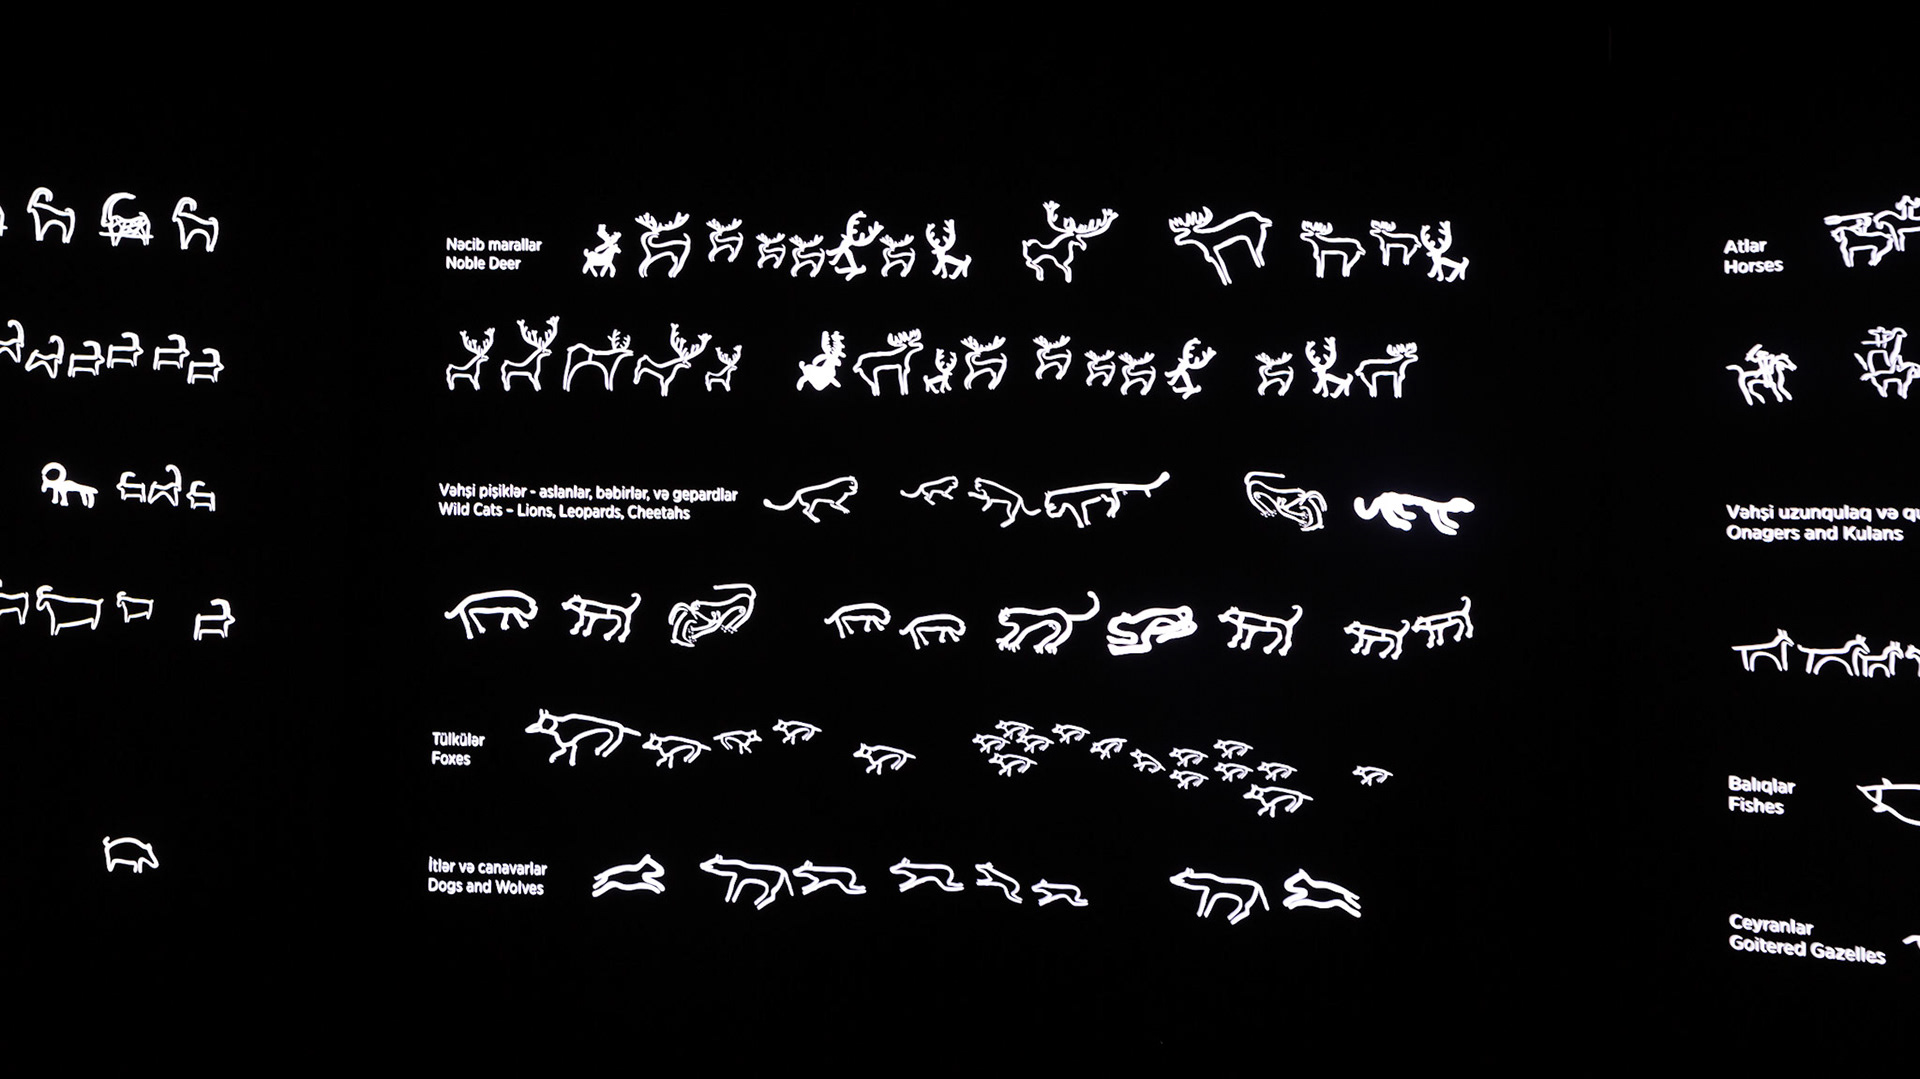 Nəcib marallar
Noble Deer
Vəhşi pişiklər - aslanlar, bəbirlər, və gepardlar
Wild Cats - Lions, Leopards, Cheetahs
Tülkülər
Foxes
İtlər və canavarlar
Dogs and Wolves
Atlar
Horses
Vəhşi uzunqulaq və
Onagers and Kulans
Balıqlar
Fishes
Ceyranlar
Goitered Gazelles